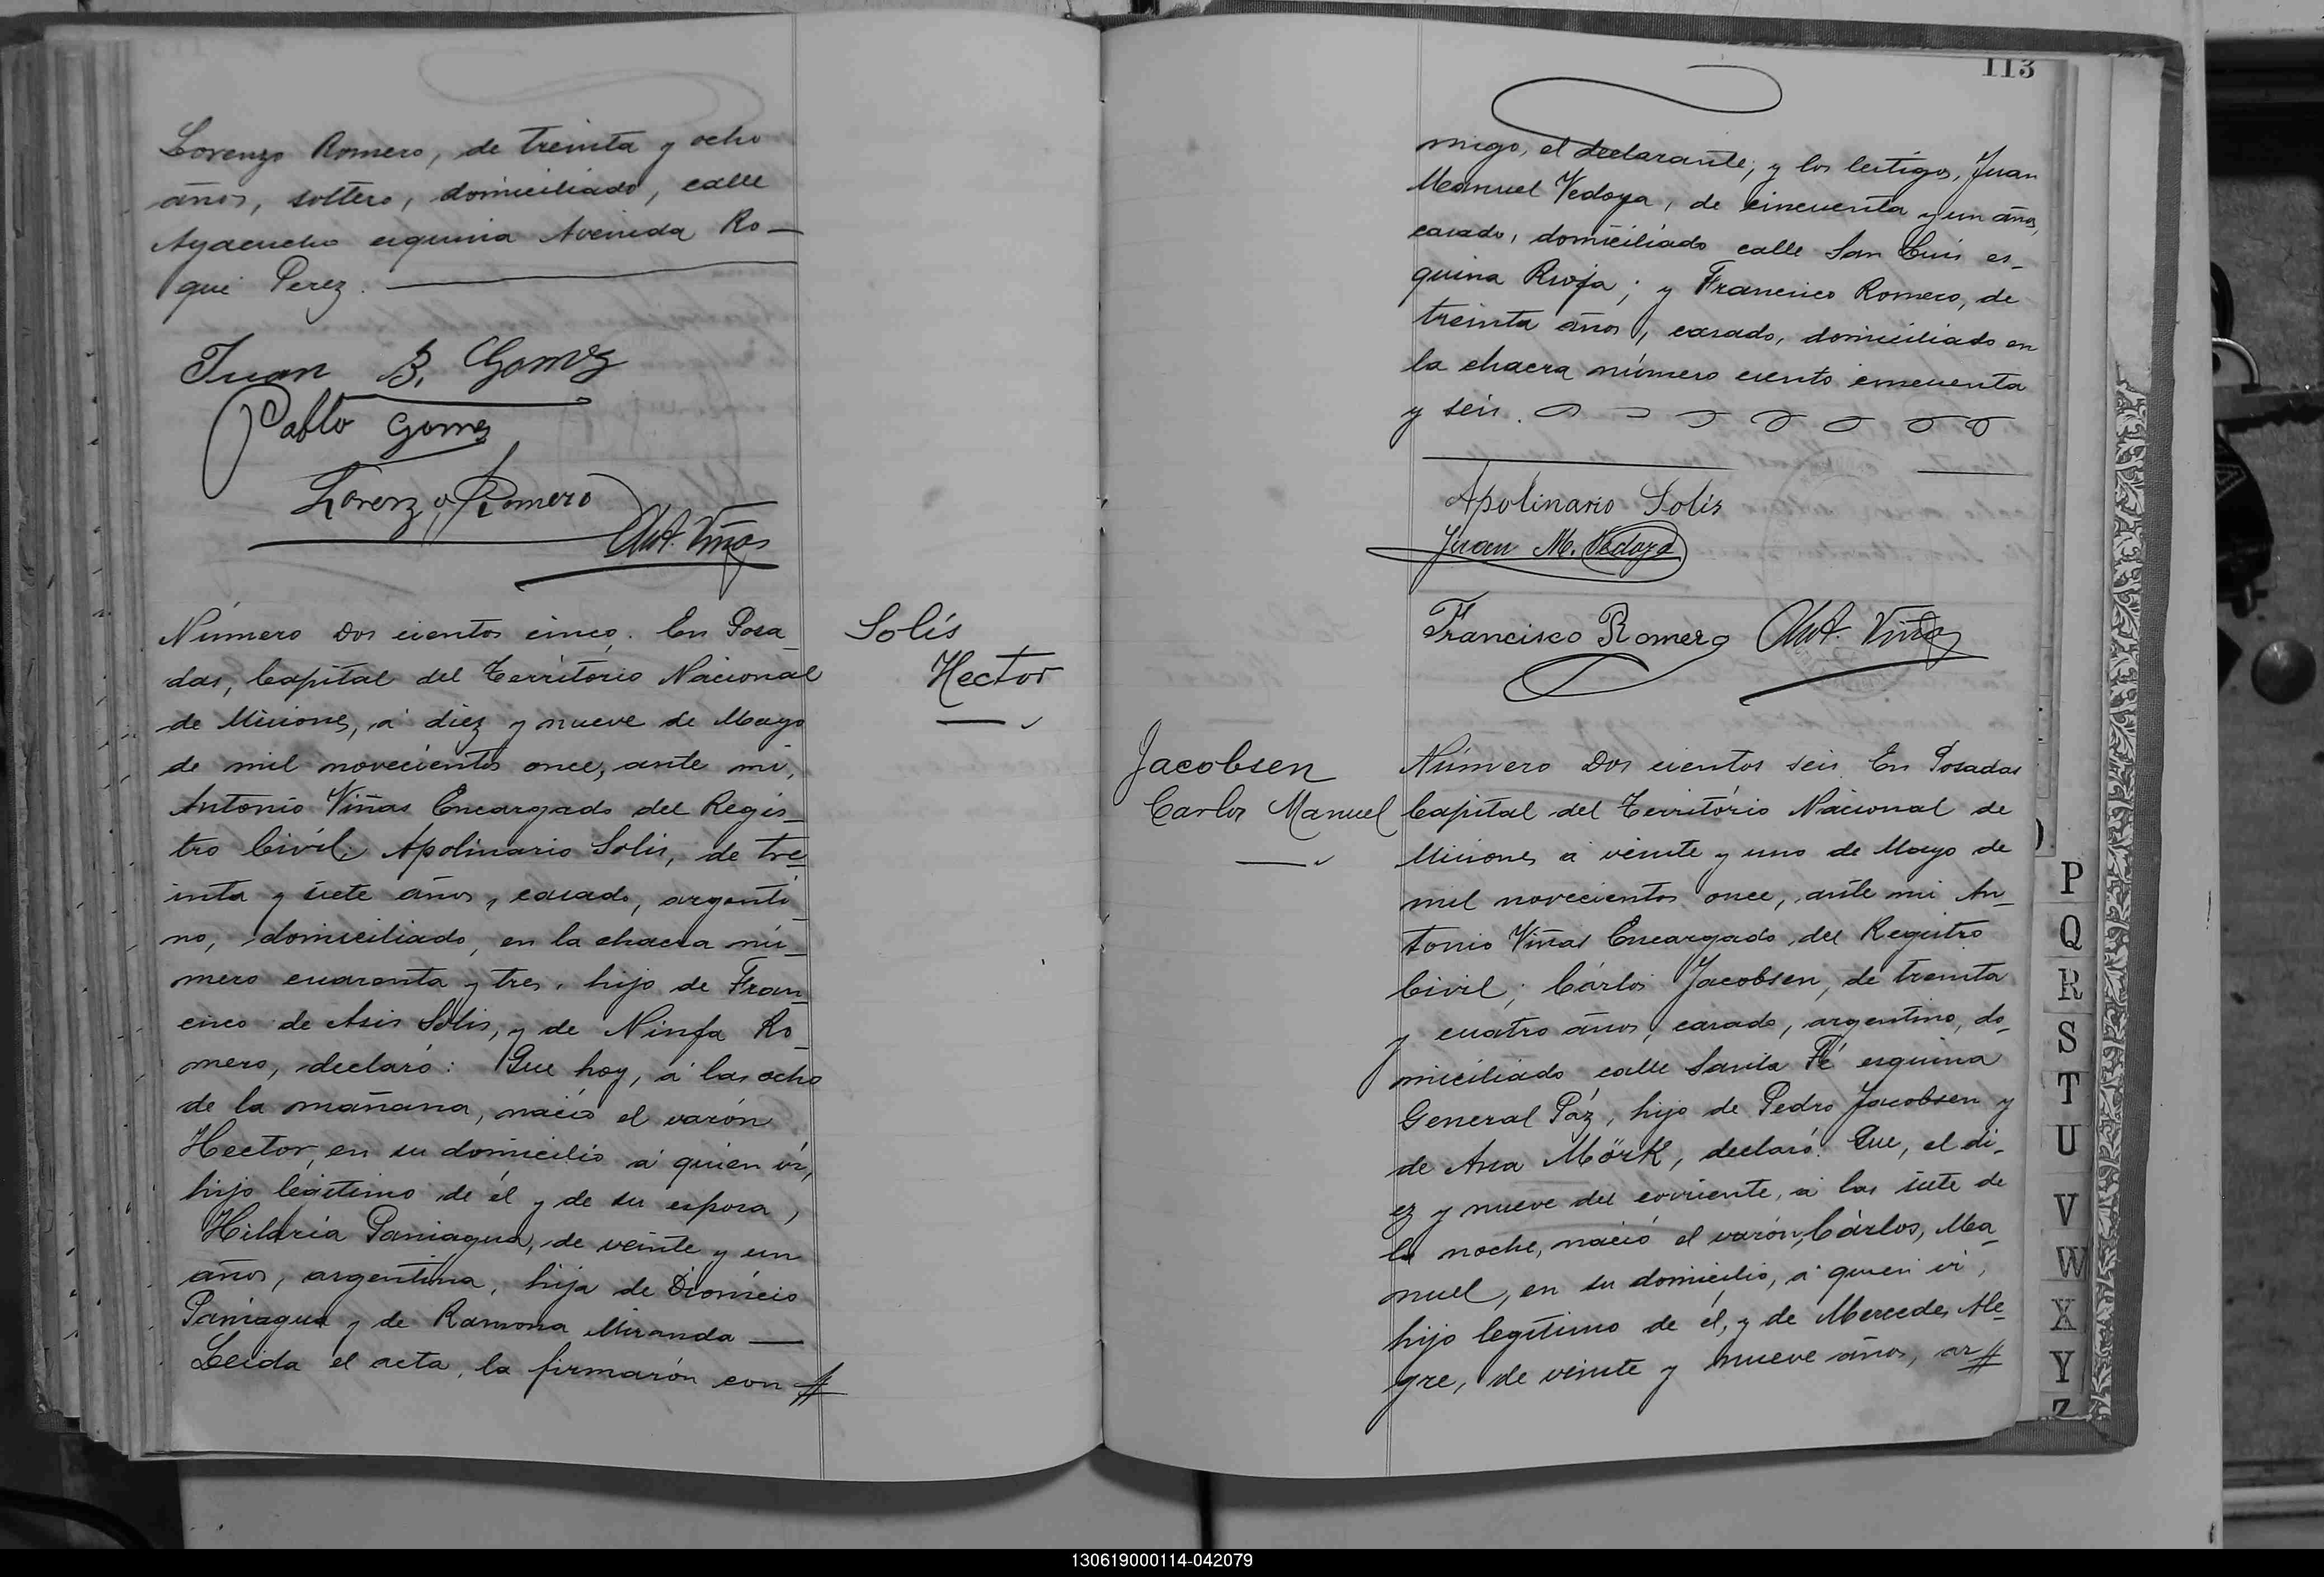 Lorenzo Romero, de treinta y ocho
años, soltero, domiciliado, calle
Ayacucho esquina Avenida Ro-
que Perez.
Juan B. Gomez
Pablo Gomez
Lorenzo Romero
Ant. Viñas
Número Dos cientos cinco. En Posa
das, Capital del Territorio Nacional
de Misiones, á diez y nueve de Mayo
de mil novecientos once, ante mi,
Antonio Viñas Encargado del Regis-
tro Civil; Apolinario Solis, de tre-
inta y siete años, casado, argenti-
no, domiciliado, en la chacra nú-
mero cuarenta y tres, hijo de Fran-
cisco de Asis Solis, y de Ninfa Ro-
mero, declaró: Que hoy, á las ocho
de la mañana, nació el varón
Hector, en su domicilio á quien ví,
hijo legítimo de él y de su esposa,
Hilaria Paniagua, de veinte y un
años, argentina, hija de Dionicio
Paniagua y de Ramona Miranda —
Leida el acta, la firmarón con #
Solís
Hector
113
migo, el declarante, y los testigos, Juan
Manuel Vedoya, de cincuenta y un años,
casado, domiciliado calle San Luis es-
quina Rioja; y Francisco Romero, de
treinta años, casado, domiciliado en
la chacra número ciento cincuenta
y seis.
Apolinario Solis
Juan M. Vedoya
Francisco Romero Ant. Viñas
Jacobsen
Carlos Manuel
Número Dos cientos seis. En Posadas
Capital del Territorio Nacional de
Misiones á veinte y uno de Mayo de
mil novecientos once, ante mi An-
tonio Viñas Encargado del Registro
Civil; Cárlos Jacobsen, de treinta
y cuatro años, casado, argentino, do-
miciliado calle Santa Fé esquina
General Páz, hijo de Pedro Jacobsen y
de Ana Mörk, declaró: Que, el di-
ez y nueve del corriente, á las siete de
la noche, nació el varón, Cárlos, Ma-
nuel, en su domicilio, á quien ví,
hijo legítimo de él, y de Mercedes Ale-
gre, de veinte y nueve años, ar#
P
Q
R
S
T
U
V
W
X
Y
Z
130619000114-042079